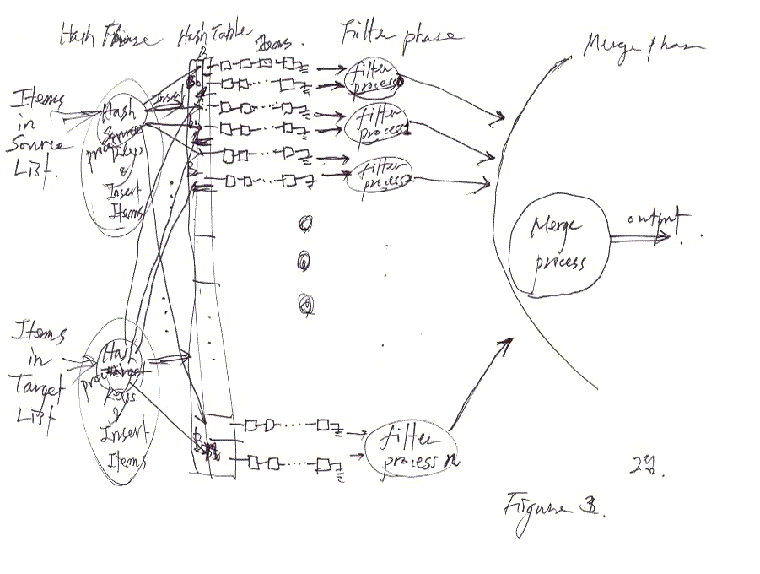 Hash Phase
Hash Table
Items
Filter phase
Merge phase
Items
in
Source
List.
Hash
process
Keys
&
Insert
Items
Insert
Filter
process
Filter
process
Filter
process
Merge
process
output
Items
in
Target
List
Hash
process
Keys
&
Insert
Items
Filter
process n
Figure 3.